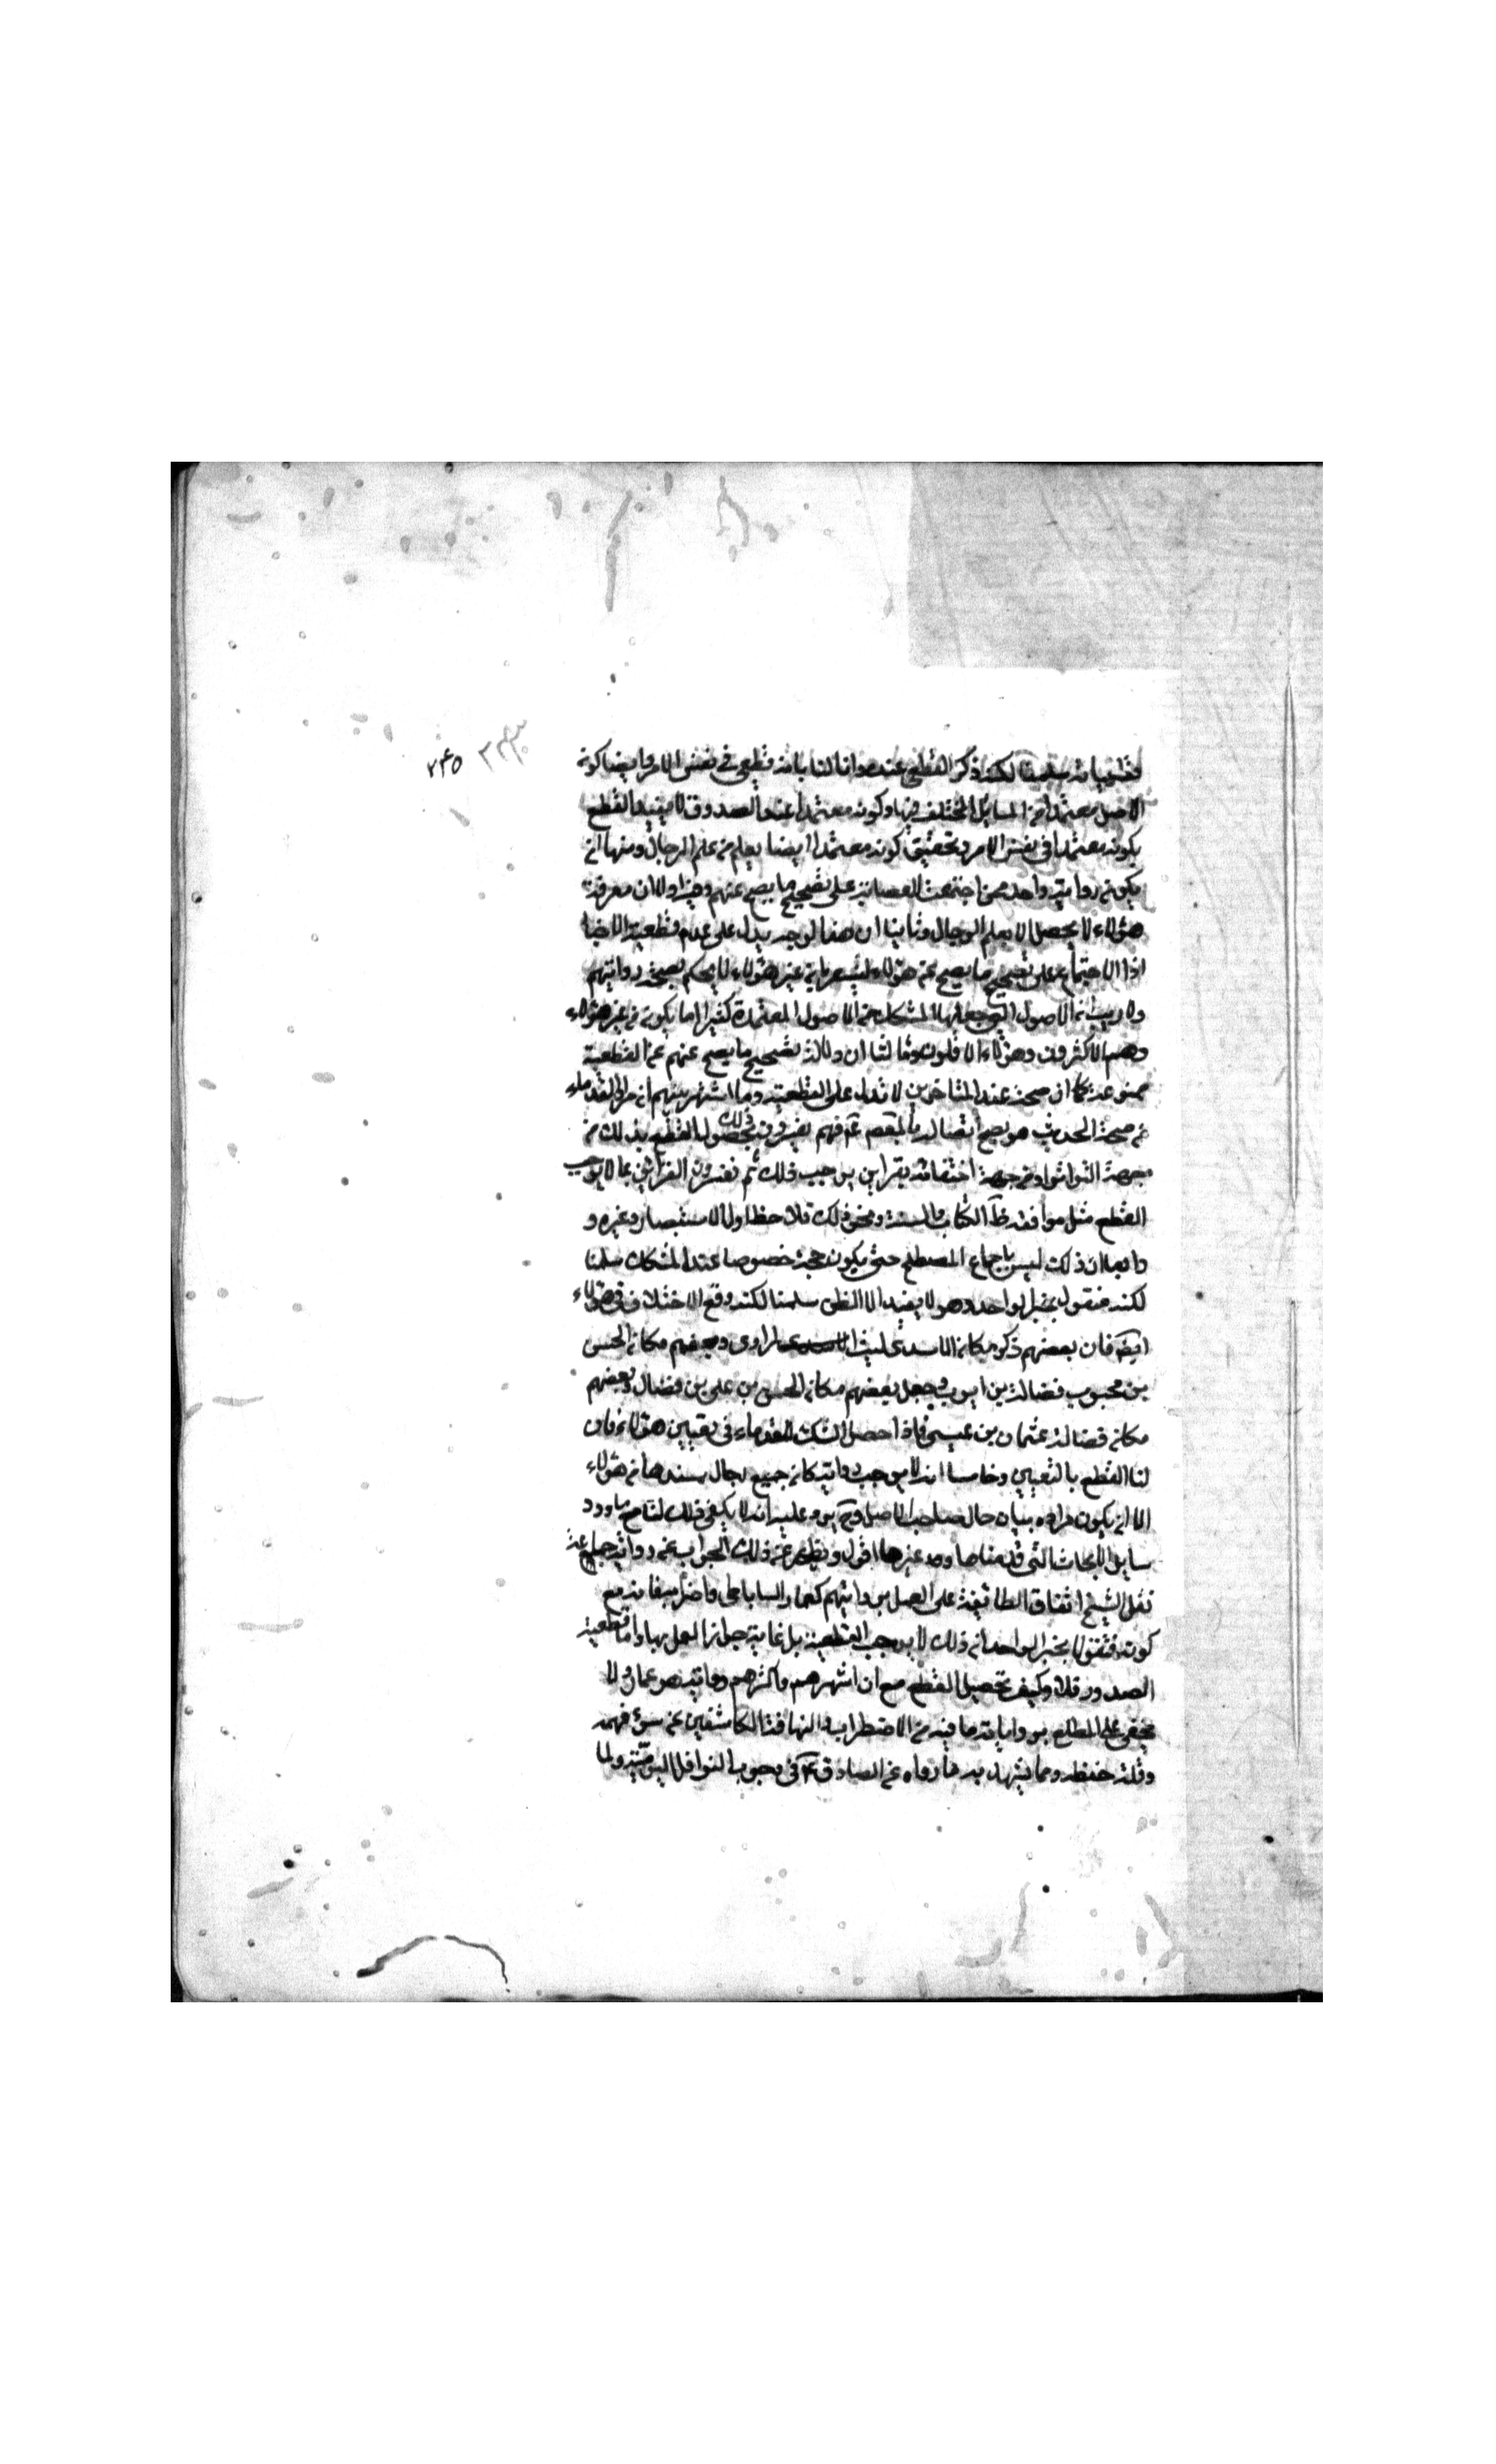 ٢٤٥
سلمنا لكنه ذكر القطع عنده وانا لنا بانه قطعي في نفس الامر وايضا كونه
الاصل معتمدا من المسايل المختلف فيها وكونه معتمدا عند الصدوق لا يفيد القطع
بكونه معتمدا في نفس الامر وتحقيق كونه معتمدا ايضا يعلم من علم الرجال ومنها ان
يكون رواية واحد ممن اجتمعت العصابة على تصحيح ما يصح عنهم وفيه اولا ان معرفة
هؤلاء لا يحصل الا بعلم الرجال وثانيا ان هذا الوجه يدل على عدم قطعية الاخبار
اذ الاجتماع على تصحيح ما يصح عن هؤلاء يشعر بان غير هؤلاء لا يحكم بصحة روايتهم
ولا ريب ان الاصول التي جعلها المشكك من الاصول المعتمدة كثيرا ما يكون من غير هؤلاء
وهم الاكثرون وهؤلاء الاقلون وثالثا ان دلالة تصحيح ما يصح عنهم على القطعية
ممنوعة كما ان صحة عند المتاخرين لا تدل على القطعية وما اشتهر بينهم ان مراد القدماء
من صحة الحديث هو يصح اتصاله بالمعصوم فهم يفسرون ذلك بحصول القطع بذلك من
جهة التواتر او من جهة احتفافه بقراين يوجب ذلك ثم يفسرون القراين بما لا يوجب
القطع مثل موافقة الكتاب والسنة ونحو ذلك فلاحظ اول الاستبصار وغيره و
رابعا ان ذلك ليس باجماع المصطلح حتى يكون حجة خصوصا عند المشكك سلمنا
لكنه منقول بخبر الواحد وهو لا يفيد الا الظن سلمنا لكنه وقع الاختلاف في هؤلاء
ايضا فان بعضهم ذكر مكان الاسدي ليث المرادي وبعضهم مكان الحسن
بن محبوب فضالة بن ايوب وجعل بعضهم مكان الحسن بن علي بن فضال وبعضهم
مكان فضالة عثمان بن عيسى فاذا حصل الشك للقدماء في تعيين هؤلاء فاين
لنا القطع بالتعيين وخامسا انه لا يوجب رواية كان جميع رجال سندها من هؤلاء
الا ان يكون مراده بيان حال صاحب الاصل و يرد عليه انه لا يكفي ذلك لنا مع ورود
ساير الابحاث التي قدمناها وغيرها اقول ويظهر من ذلك الجواب عن رواية جماعة
نقل الشيخ اتفاق الطائفة على العمل بروايتهم كعمار الساباطي واضرابه فانه مع
كونه منقولا بخبر الواحد ان ذلك لا يوجب القطعية بل غاية جواز العمل بها واما قطعية
الصدور فلا وكيف تحصيل القطع مع ان اشهرهم واكثرهم رواية هو عمار ولا
يخفى على المطلع برواياته ما فيه من الاضطراب والتهافت الكاشفين عن سوء فهمه
وقلة حفظه ومما يشهد به ما رواه عن الصادق في وجوب النوافل اليومية ولما